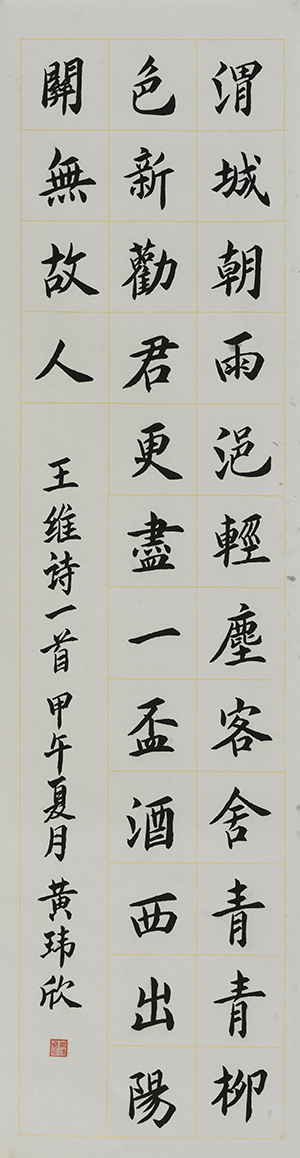 渭城朝雨浥輕塵客舍青青柳
色新勸君更盡一盃酒西出陽
關無故人
王維詩一首甲午夏月黃瑋欣